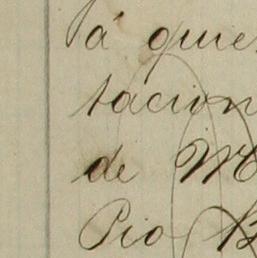 á quie
tacion
de M
Pio B